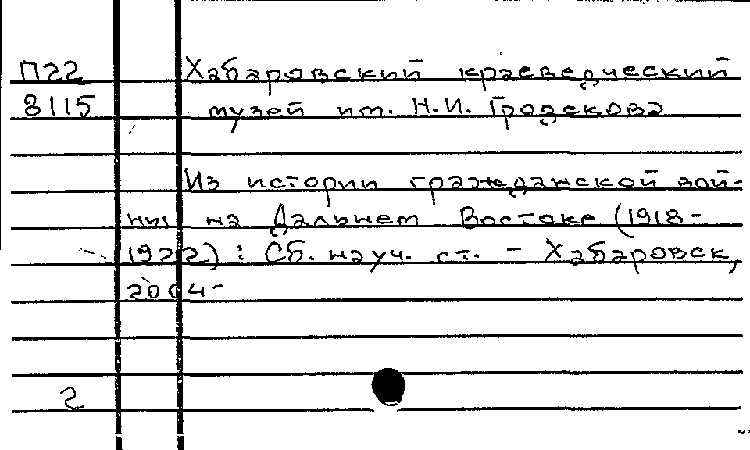 П22 Хабаровский краеведческий
8115 музей им. Н.И. Гродекова
Из истории гражданской вой-
ны на Дальнем Востоке (1918-
1922) : Сб. науч. ст. - Хабаровск,
2004-
2